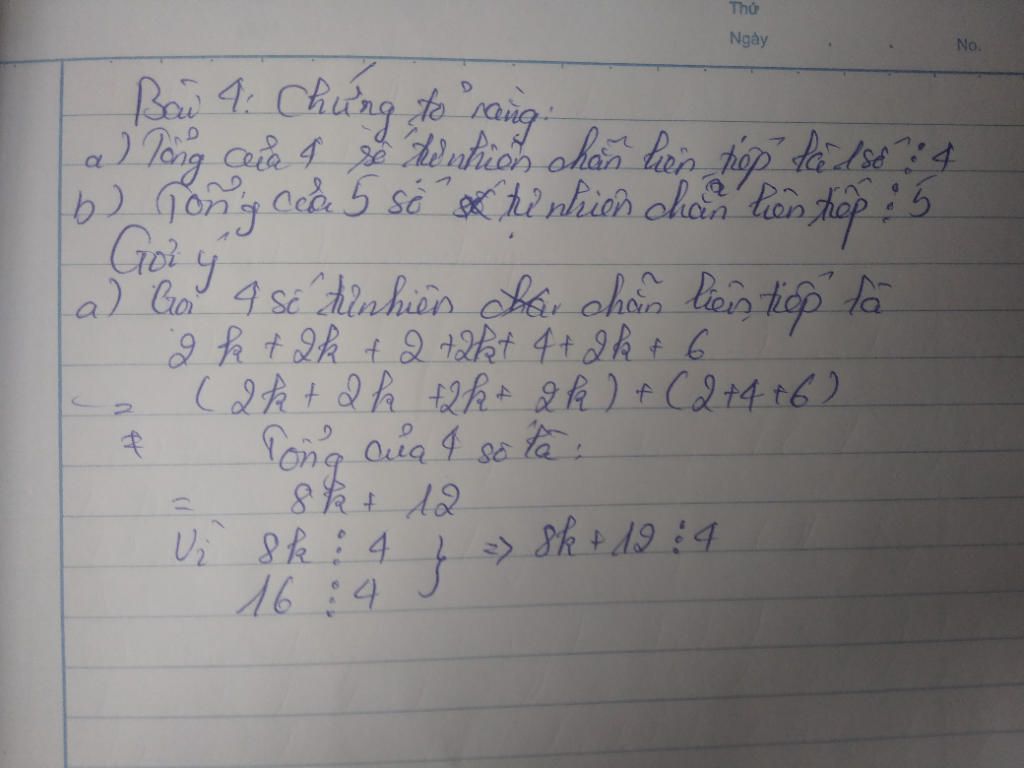 Thứ
Ngày . . No.
Bài 4: Chứng tỏ rằng:
a) Tổng của 4 số tự nhiên chẵn liên tiếp là 1 số ⋮ 4
b) Tổng của 5 số tự nhiên chẵn liên tiếp ⋮ 5
Gợi ý
a) Gọi 4 số tự nhiên chẵn liên tiếp là
2k + 2k + 2 + 2k + 4 + 2k + 6
= (2k + 2k + 2k + 2k) + (2+4+6)
Tổng của 4 số là:
= 8k + 12
Vì 8k ⋮ 4 } => 8k + 12 ⋮ 4
16 ⋮ 4